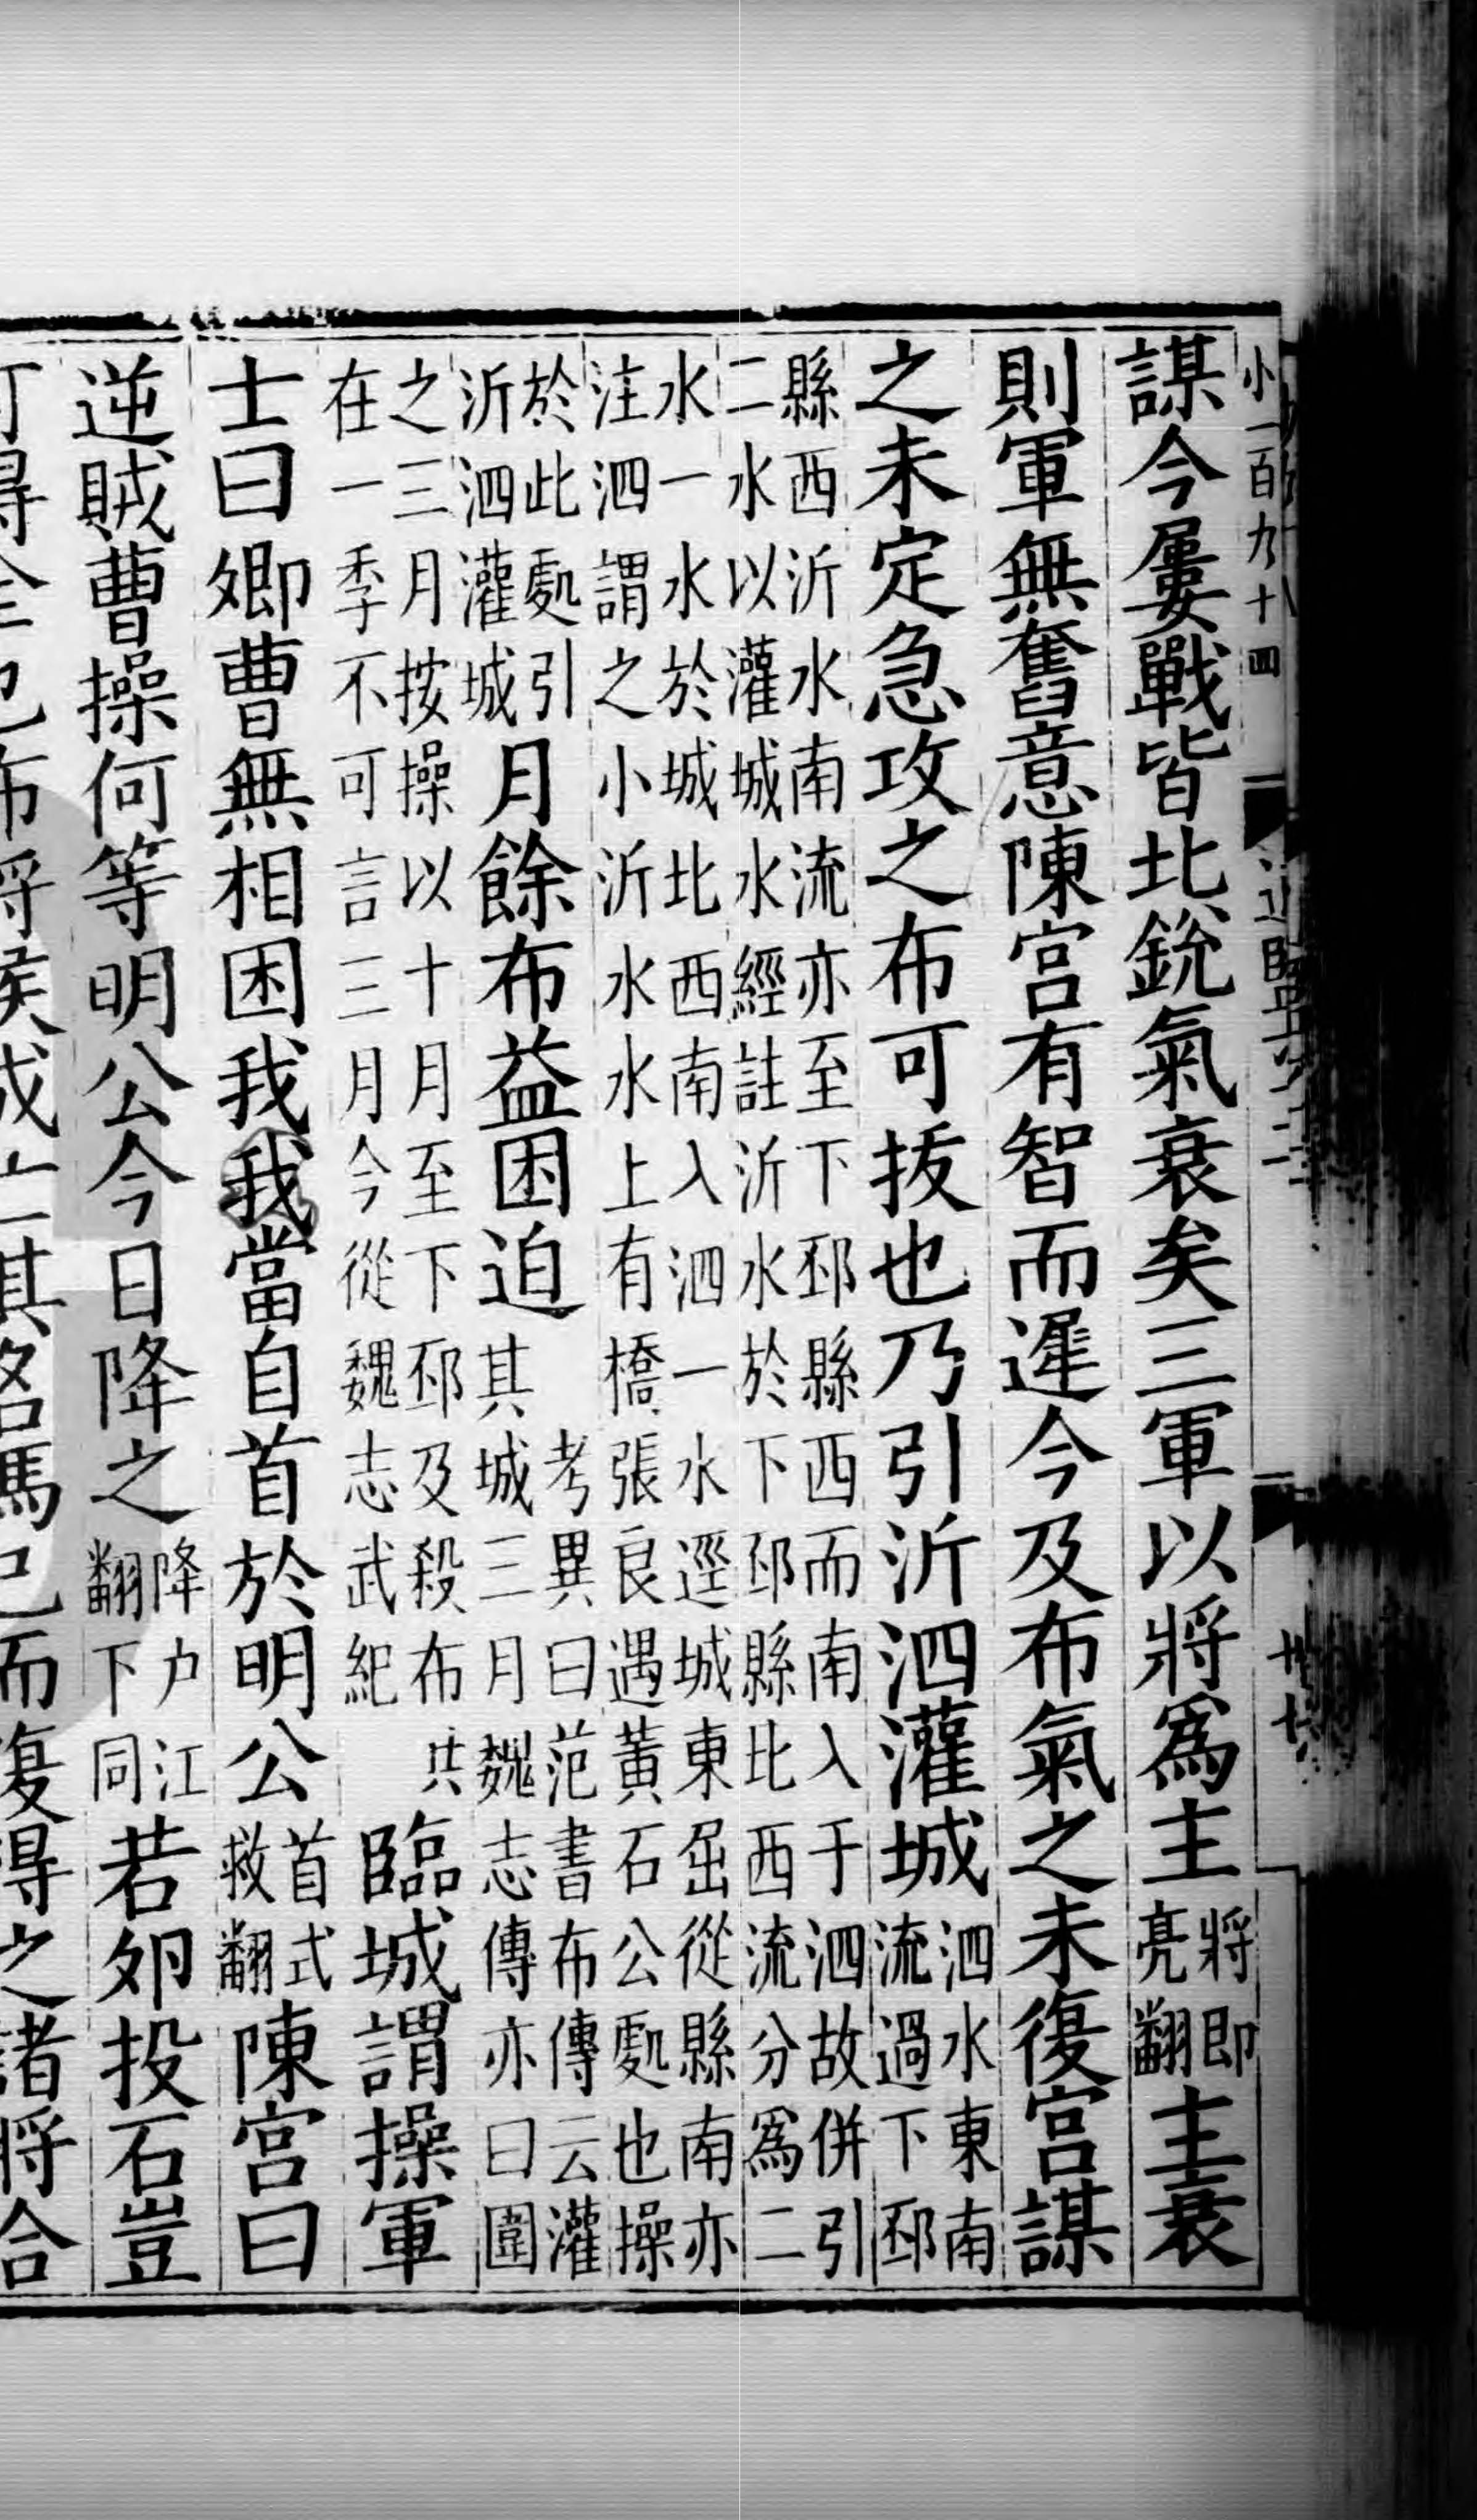 謀今屢戰皆北銳氣衰矣三軍以將爲主將即亮翻主衰
則軍無奮意陳宮有智而遲今及布氣之未復宮謀
之未定急攻之布可拔也乃引沂泗灌城泗水東南流過下邳
縣西沂水南流亦至下邳縣西而南入于泗故併引
二水以灌城水經註沂水於下邳縣北西流分爲二
水一水於城北西南入泗一水逕城東屈從縣南亦
注泗謂之小沂水水上有橋張良遇黃石公處也操
於此處引沂泗灌城月餘布益困迫考異曰范書布傳云灌其城三月魏志傳亦曰圍
之三月按操以十月至下邳及殺布共在一季不可言三月今從魏志武紀臨城謂操軍
士曰卿曹無相困我我當自首於明公首式救翻陳宮曰
逆賊曹操何等明公今日降之降户江翻下同若夘投石豈
可得全也布將侯成亡其名馬已而復得之諸將合